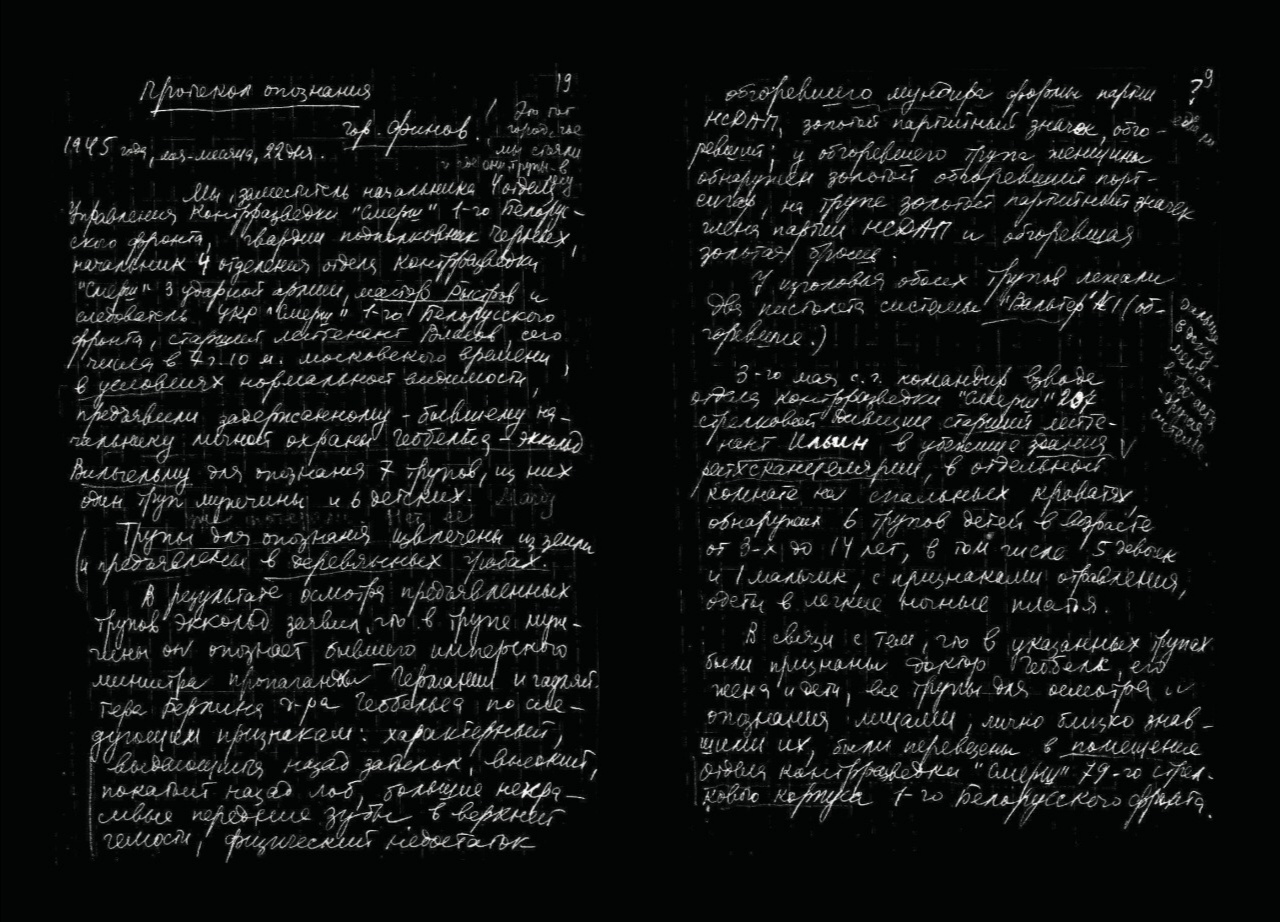 19
Протокол опознания
гор. Финов.
! Это тот
город, где
мы стояли
1945 года, мая-месяца, 22 дня.
Мы, заместитель начальника 4 отдела
Управления Контрразведки "Смерш" 1-го Белорус-
ского фронта, гвардии подполковник Черных,
начальник 4 отделения отдела контрразведки
"Смерш" 3 ударной армии, майор Быстров и
следователь УКР "Смерш" 1-го Белорусского
фронта, старший лейтенант Власов сего
числа в 7 ч. 10 м. московского времени,
в условиях нормальной видимости,
предъявили задержанному - бывшему на-
чальнику личной охраны Геббельса - Эккольд
Вильгельму для опознания 7 трупов, из них
один труп мужчины и 6 детских.
Трупы для опознания извлечены из земли
и предъявлены в деревянных гробах.
В результате осмотра предъявленных
трупов Эккольд заявил, что в трупе муж-
чины он опознает бывшего имперского
министра пропаганды Германии и гауляй-
тера Берлина д-ра Геббельса по сле-
дующим признакам: характерный,
выдающийся назад затылок, высокий,
покатый назад лоб, большие некра-
сивые передние зубы в верхней
челюсти, физический недостаток
9
?
обгоревшего мундира формы партии
НСДАП, золотой партийный значок, обго-
ревший; у обгоревшего трупа женщины
обнаружен золотой обгоревший порт-
сигар, на трупе золотой партийный значек
члена партии НСДАП и обгоревшая
золотая брошь.
У изголовья обоих трупов лежали
два пистолета системы "Вальтер №1 (об-
горевшие.)
3-го мая с.г. командир взвода
отдела контрразведки "Смерш" 207
стрелковой дивизии старший лейте-
нант Ильин в убежище здания
рейхсканцелярии, в отдельной
комнате на спальных кроватях
обнаружил 6 трупов детей в возрасте
от 3-х до 14 лет, в том числе 5 девочек
и 1 мальчик, с признаками отравления,
одеты в легкие ночные платья.
В связи с тем, что в указанных трупах
были признаны доктор Геббельс, его
жена и дети, все трупы для осмотра и
опознания лицами, лично близко знав-
шими их, были перевезены в помещение
отдела контрразведки "Смерш" 79-го стрел-
кового корпуса 1-го Белорусского фронта.